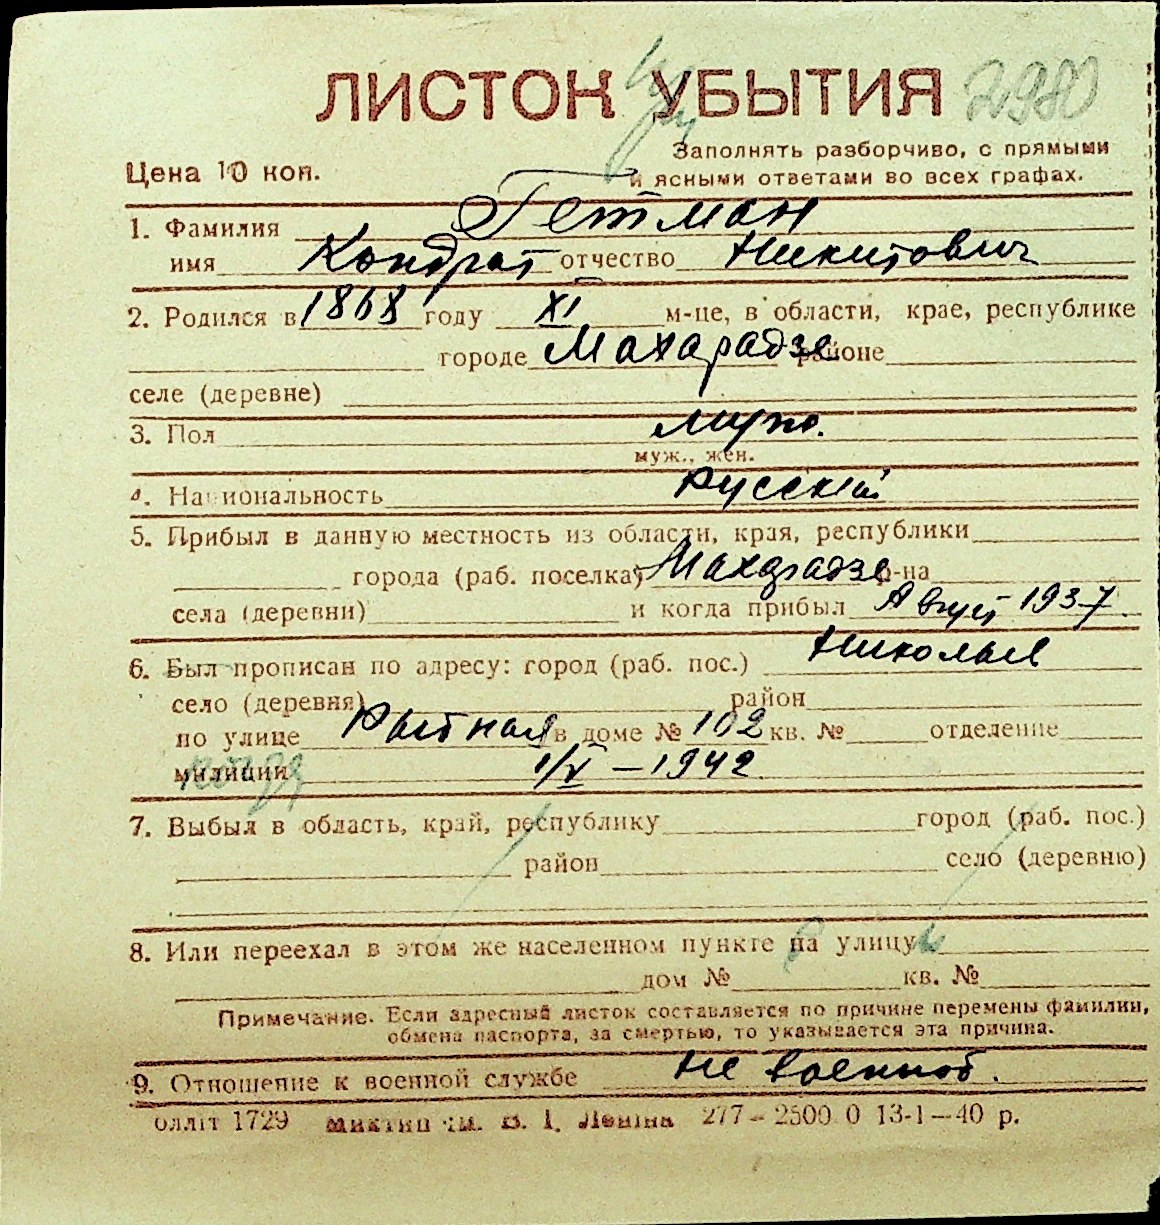 ЛИСТОК УБЫТИЯ 2980
Заполнять разборчиво, с прямыми
Цена 10 коп. и ясными ответами во всех графах.
1. Фамилия Гетман
имя Кондрат отчество Никитович
2. Родился в 1868 году XI м-це, в области, крае, республике
городе Махарадзе районе
селе (деревне)
3. Пол муж.
муж., жен.
4. Национальность Русский
5. Прибыл в данную местность из области, края, республики
города (раб. поселка) Махарадзе р-на
села (деревни) и когда прибыл Август 1937
6. Был прописан по адресу: город (раб. пос.) Николаев
село (деревня) район
по улице Рыбная в доме № 102 кв. № отделение
милиции 1/V – 1942
7. Выбыл в область, край, республику город (раб. пос.)
район село (деревню)
8. Или переехал в этом же населенном пункте на улицу
дом № кв. №
Примечание. Если адресный листок составляется по причине перемены фамилии,
обмена паспорта, за смертью, то указывается эта причина.
9. Отношение к военной службе не военноб.
оллiт 1729 им. В. І. Ленiна 277 – 2500.0 13-1 – 40 р.